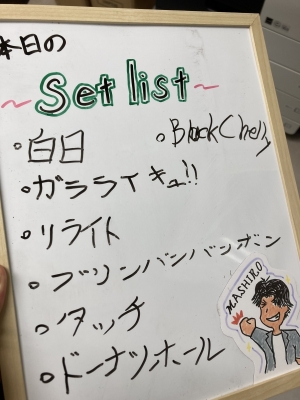 本日の
~Set list~
・白日
・Black Cherry
・ガラライキュ!!
・リライト
・ブリンバンバンボン
・タッチ
・ドーナツホール
MASHIRO